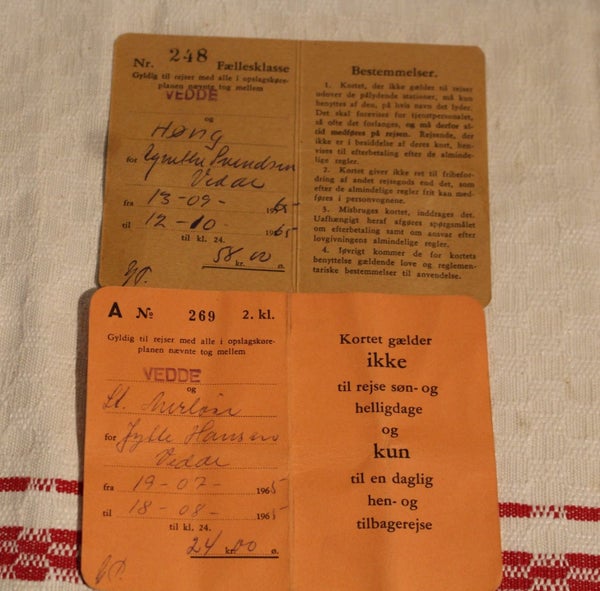 Nr. 248 Fællesklasse
Gyldig til rejser med alle i opslagskøre-
planen nævnte tog mellem
VEDDE
og
Høng
for Svendsen
Vedde
fra 13-09- 1965
til 12-10- 1965
til kl. 24.
58 kr. 00 ø.
Bestemmelser.
1. Kortet, der ikke gælder til rejser
udover de pålydende stationer, må kun
benyttes af den, på hvis navn det lyder.
Det skal forevises for tjenstpersonalet,
så ofte det forlanges, og må derfor al-
tid medføres på rejsen. Rejsende, der
ikke er i besiddelse af deres kort, hen-
vises til efterbetaling efter de alminde-
lige regler.
2. Kortet giver ikke ret til fribefor-
dring af andet rejsegods end det, som
efter de almindelige regler frit kan med-
føres i personvognene.
3. Misbruges kortet, inddrages det.
Uafhængigt heraf afgøres spørgsmålet
om efterbetaling samt om ansvar efter
lovgivningens almindelige regler.
4. Iøvrigt kommer de for kortets
benyttelse gældende love og reglemen-
tariske bestemmelser til anvendelse.
A No 269 2. kl.
Gyldig til rejser med alle i opslagskøre-
planen nævnte tog mellem
VEDDE
og
St. Merløse
for Jytte Hansen
Vedde
fra 19-07- 1965
til 18-08- 1965
til kl. 24.
24 kr. 00 ø.
Kortet gælder
ikke
til rejse søn- og
helligdage
og
kun
til en daglig
hen- og
tilbagerejse